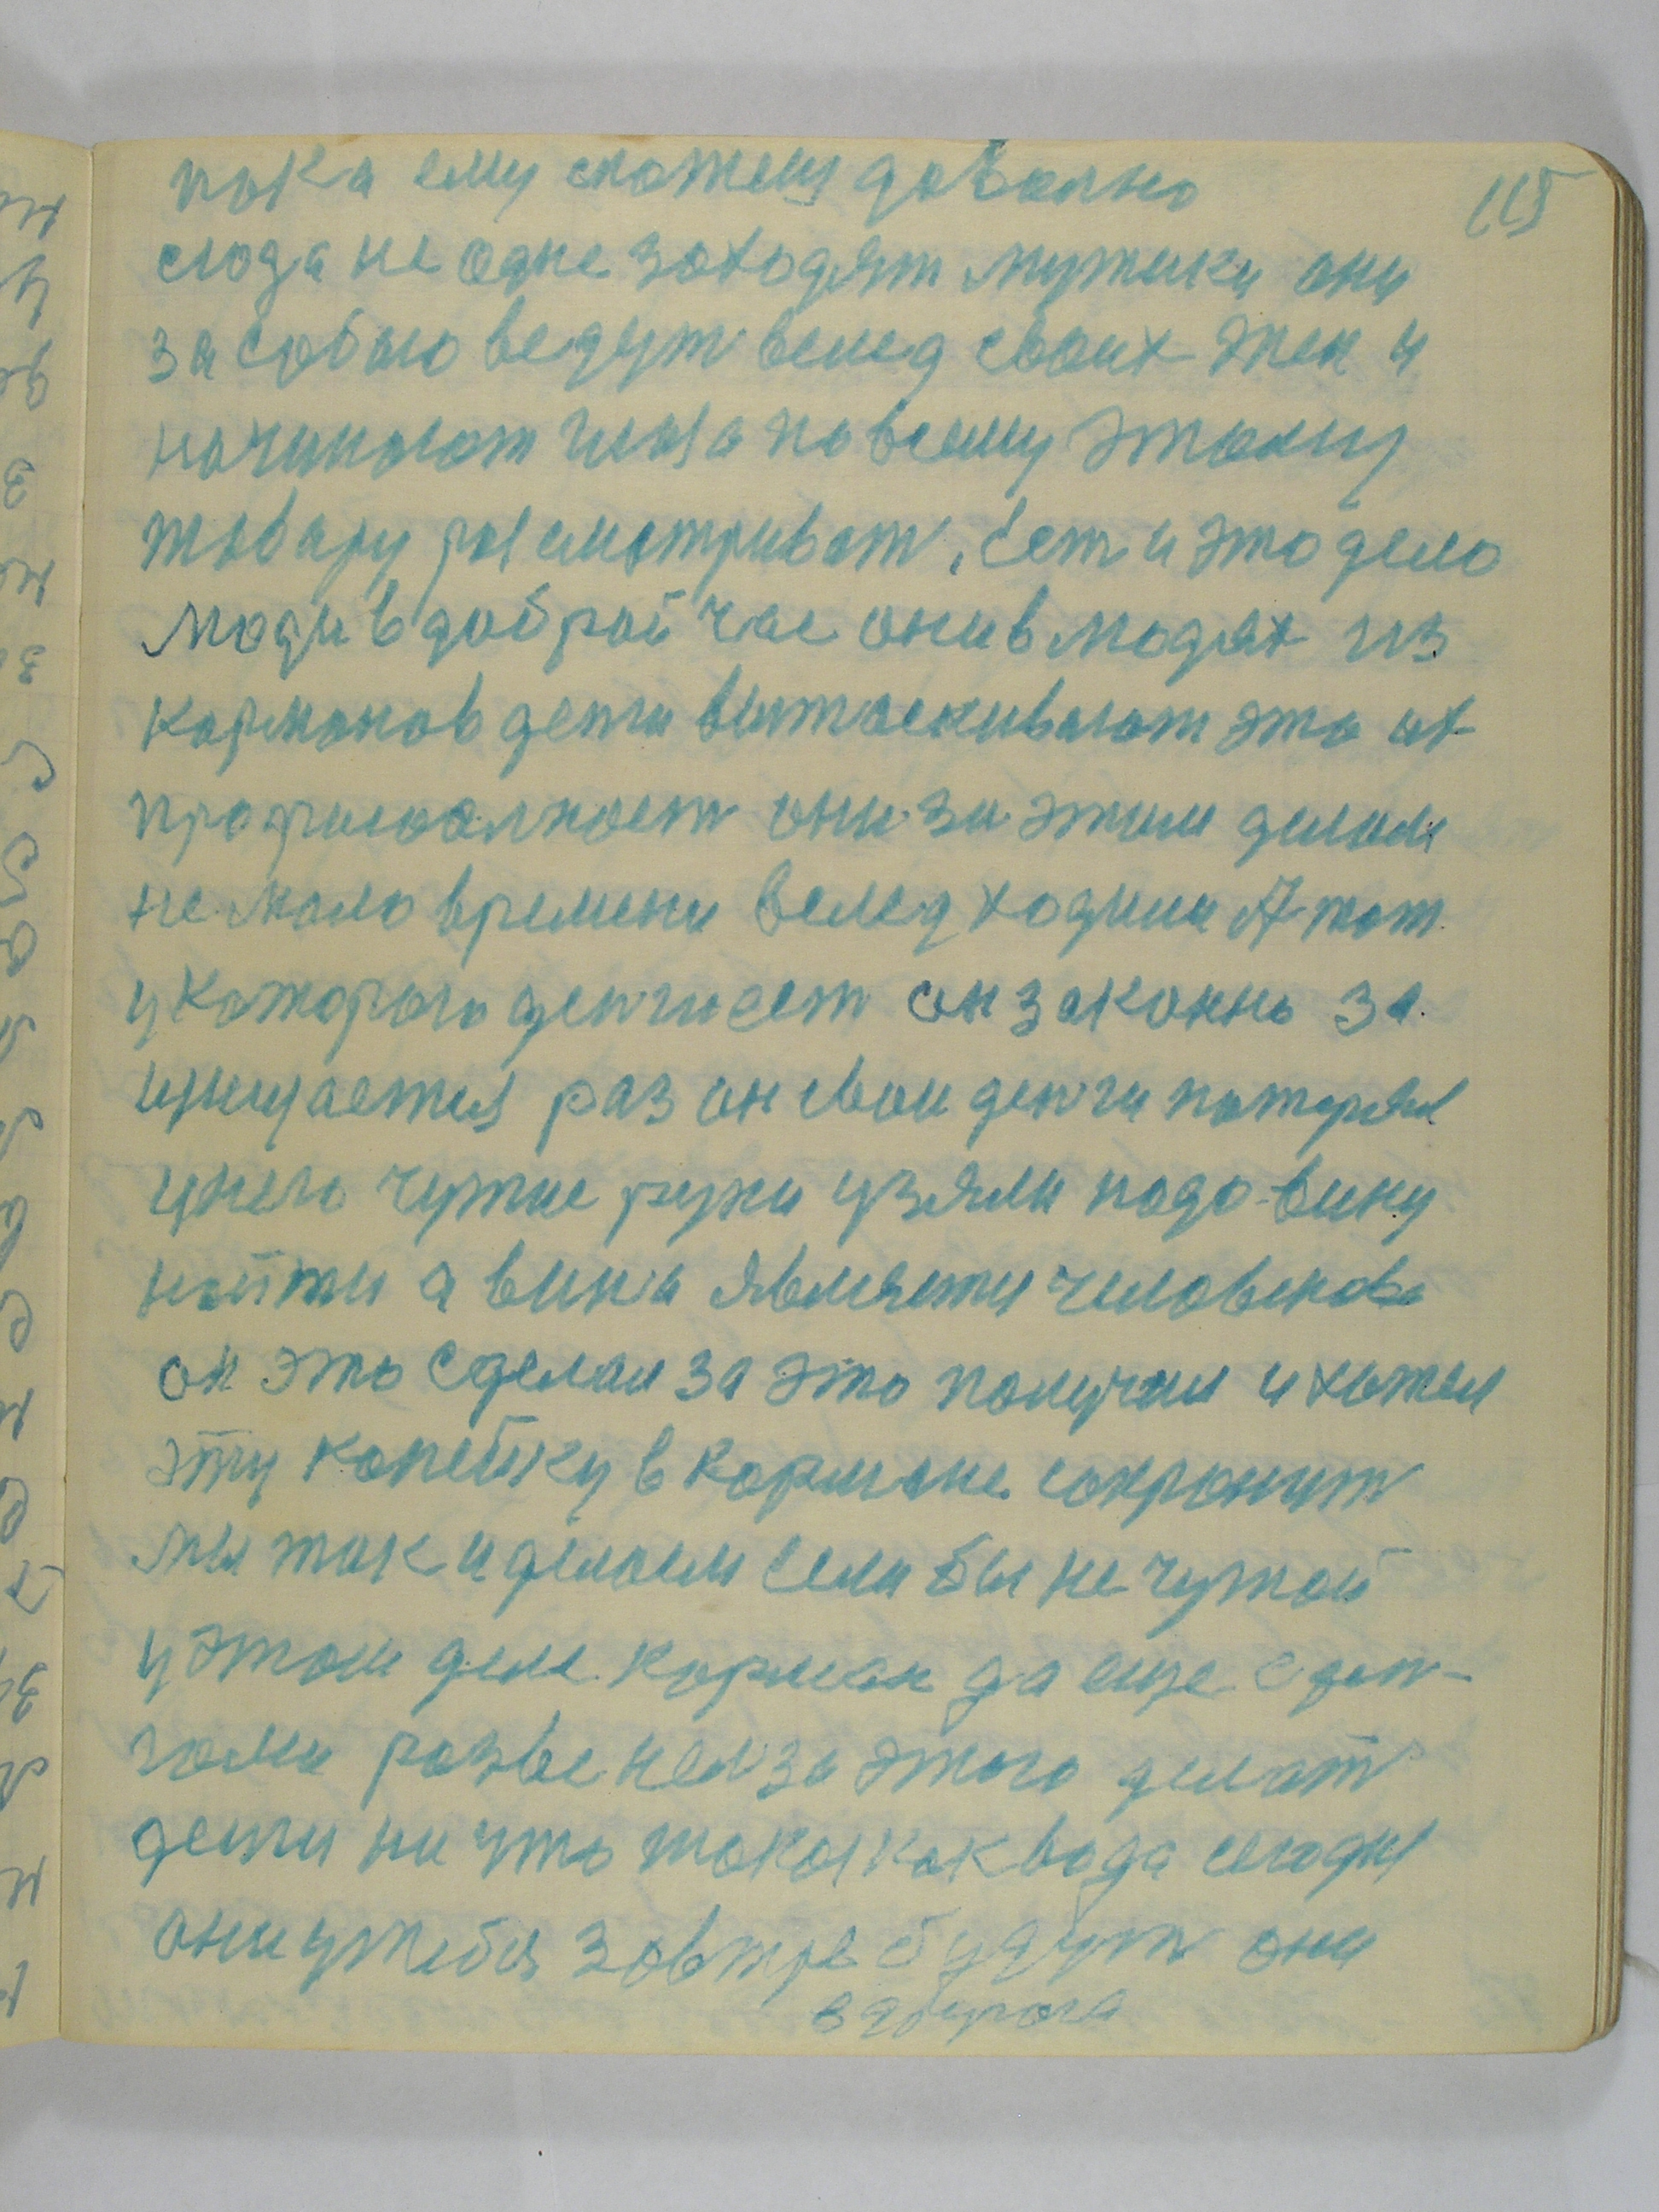 115
пока ему скажеш довално
сюда не одне заходят мужики они
за собою ведут вслед своих жен и
начинают глаза по всему этому
товару расматриват, Ест и это дело
люди в доброй час они в людях из
карманов денги вытаскивают это их
професоалност они за этим делом
не мало времени вслед ходили А тот
у которого денги ест он законно за
щищается раз он свои денги потерял
унего чужие руки узяли надо вину
найти а вина является человекова
он это сделал за это получил и хотел
эту копейку в кормане сохронит
мы так и делаем если бы не чужой
у этом деле корман да еще с ден-
гами разве нелзя этого делат
денги ни что такая как вода сегодня
они утебя завтре будут они
в другога